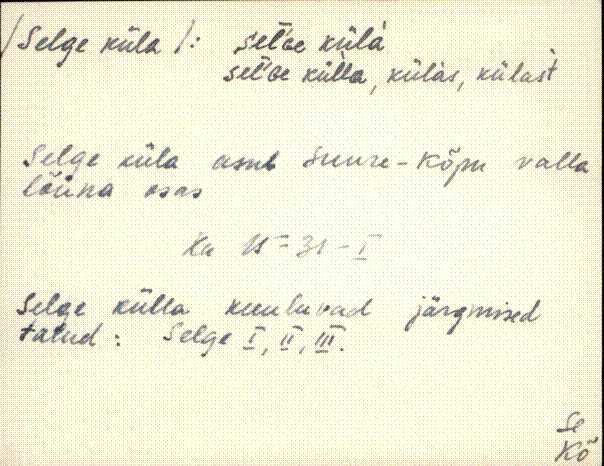 /Selge küla/: sel'ge külä
sel'ge külla, küläs, külast
Selge küla asub Suure-Kõpu valla
lõuna osas
Ku 15=31-I
Selge külla kuuluvad järgmised
talud: Selge I, II, III.
Se
Kõ